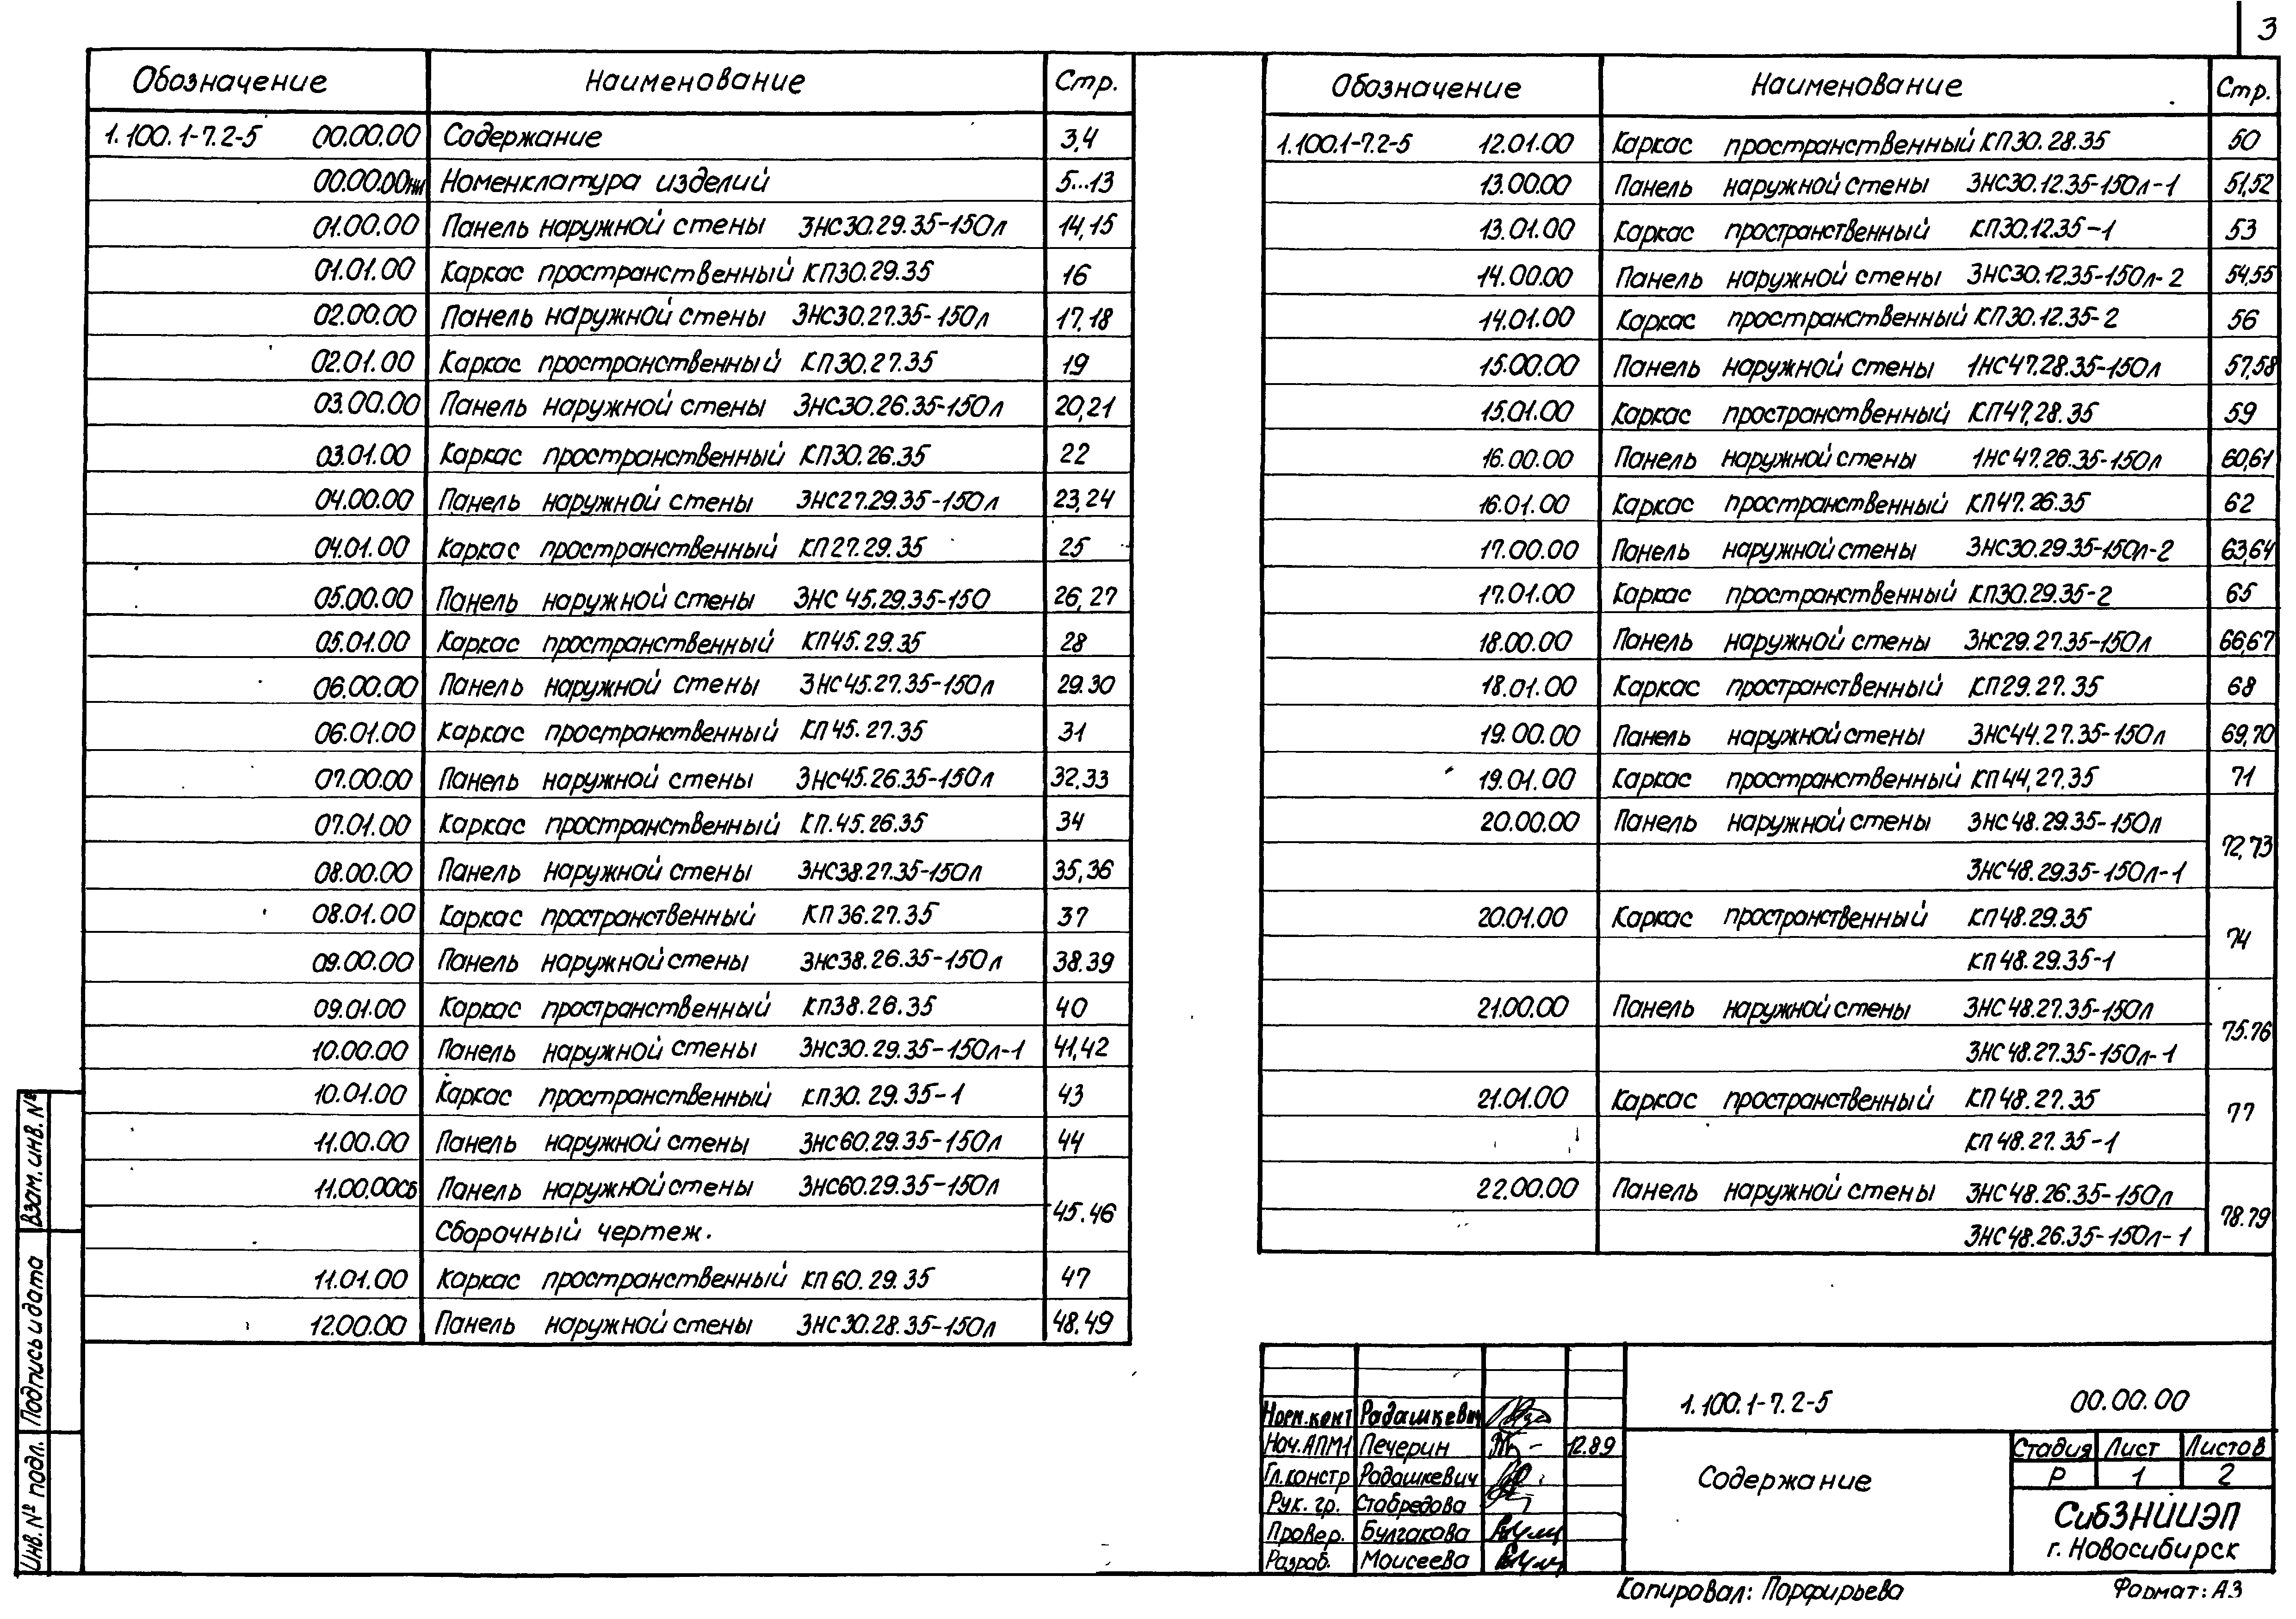 3
Обозначение Наименование Стр.
1.100.1-7.2-5 00.00.00 Содержание 3,4
00.00.00ни Номенклатура изделий 5...13
01.00.00 Панель наружной стены 3НС30.29.35-150л 14,15
01.01.00 Каркас пространственный КП30.29.35 16
02.00.00 Панель наружной стены 3НС30.27.35-150л 17,18
02.01.00 Каркас пространственный КП30.27.35 19
03.00.00 Панель наружной стены 3НС30.26.35-150л 20,21
03.01.00 Каркас пространственный КП30.26.35 22
04.00.00 Панель наружной стены 3НС27.29.35-150л 23,24
04.01.00 Каркас пространственный КП27.29.35 25
05.00.00 Панель наружной стены 3НС 45.29.35-150 26,27
05.01.00 Каркас пространственный КП45.29.35 28
06.00.00 Панель наружной стены 3НС45.27.35-150л 29.30
06.01.00 Каркас пространственный КП45.27.35 31
07.00.00 Панель наружной стены 3НС45.26.35-150л 32,33
07.01.00 Каркас пространственный КП.45.26.35 34
08.00.00 Панель наружной стены 3НС38.27.35-150л 35,36
08.01.00 Каркас пространственный КП36.27.35 37
09.00.00 Панель наружной стены 3НС38.26.35-150л 38.39
09.01.00 Каркас пространственный КП38.26.35 40
10.00.00 Панель наружной стены 3НС30.29.35-150л-1 41,42
10.01.00 Каркас пространственный КП30.29.35-1 43
11.00.00 Панель наружной стены 3НС60.29.35-150л 44
11.00.00СБ Панель наружной стены 3НС60.29.35-150л 45.46
Сборочный чертеж.
11.01.00 Каркас пространственный КП60.29.35 47
12.00.00 Панель наружной стены 3НС30.28.35-150л 48.49
Обозначение Наименование Стр.
1.100.1-7.2-5 12.01.00 Каркас пространственный КП30.28.35 50
13.00.00 Панель наружной стены 3НС30.12.35-150л-1 51,52
13.01.00 Каркас пространственный КП30.12.35-1 53
14.00.00 Панель наружной стены 3НС30.12.35-150л-2 54,55
14.01.00 Каркас пространственный КП30.12.35-2 56
15.00.00 Панель наружной стены 1НС47.28.35-150л 57,58
15.01.00 Каркас пространственный КП47,28.35 59
16.00.00 Панель наружной стены 1НС47.26.35-150л 60,61
16.01.00 Каркас пространственный КП47.26.35 62
17.00.00 Панель наружной стены 3НС30.29.35-150л-2 63,64
17.01.00 Каркас пространственный КП30.29.35-2 65
18.00.00 Панель наружной стены 3НС29.27.35-150л 66,67
18.01.00 Каркас пространственный КП29.27.35 68
19.00.00 Панель наружной стены 3НС44.27.35-150л 69,70
19.01.00 Каркас пространственный КП44,27.35 71
20.00.00 Панель наружной стены 3НС48.29.35-150л 72,73
3НС48.29.35-150л-1
20.01.00 Каркас пространственный КП48.29.35 74
КП48.29.35-1
21.00.00 Панель наружной стены 3НС48.27.35-150л 75.76
3НС48.27.35-150л-1
21.01.00 Каркас пространственный КП48.27.35 77
КП48.27.35-1
22.00.00 Панель наружной стены 3НС48.26.35-150л 78.79
3НС48.26.35-150л-1
Взам. инв. №
Подпись и дата
Инв. № подл.
1.100.1-7.2-5 00.00.00
Норм.конт Радашкевич
Нач.АПМ1 Печерин 12.89
Гл.констр Радашкевич
Рук. гр. Стабредова
Провер. Булгакова
Разраб. Моисеева
Содержание
Стадия Лист Листов
Р 1 2
СибЗНИИЭП
г. Новосибирск
Копировал: Порфирьева Формат: А3